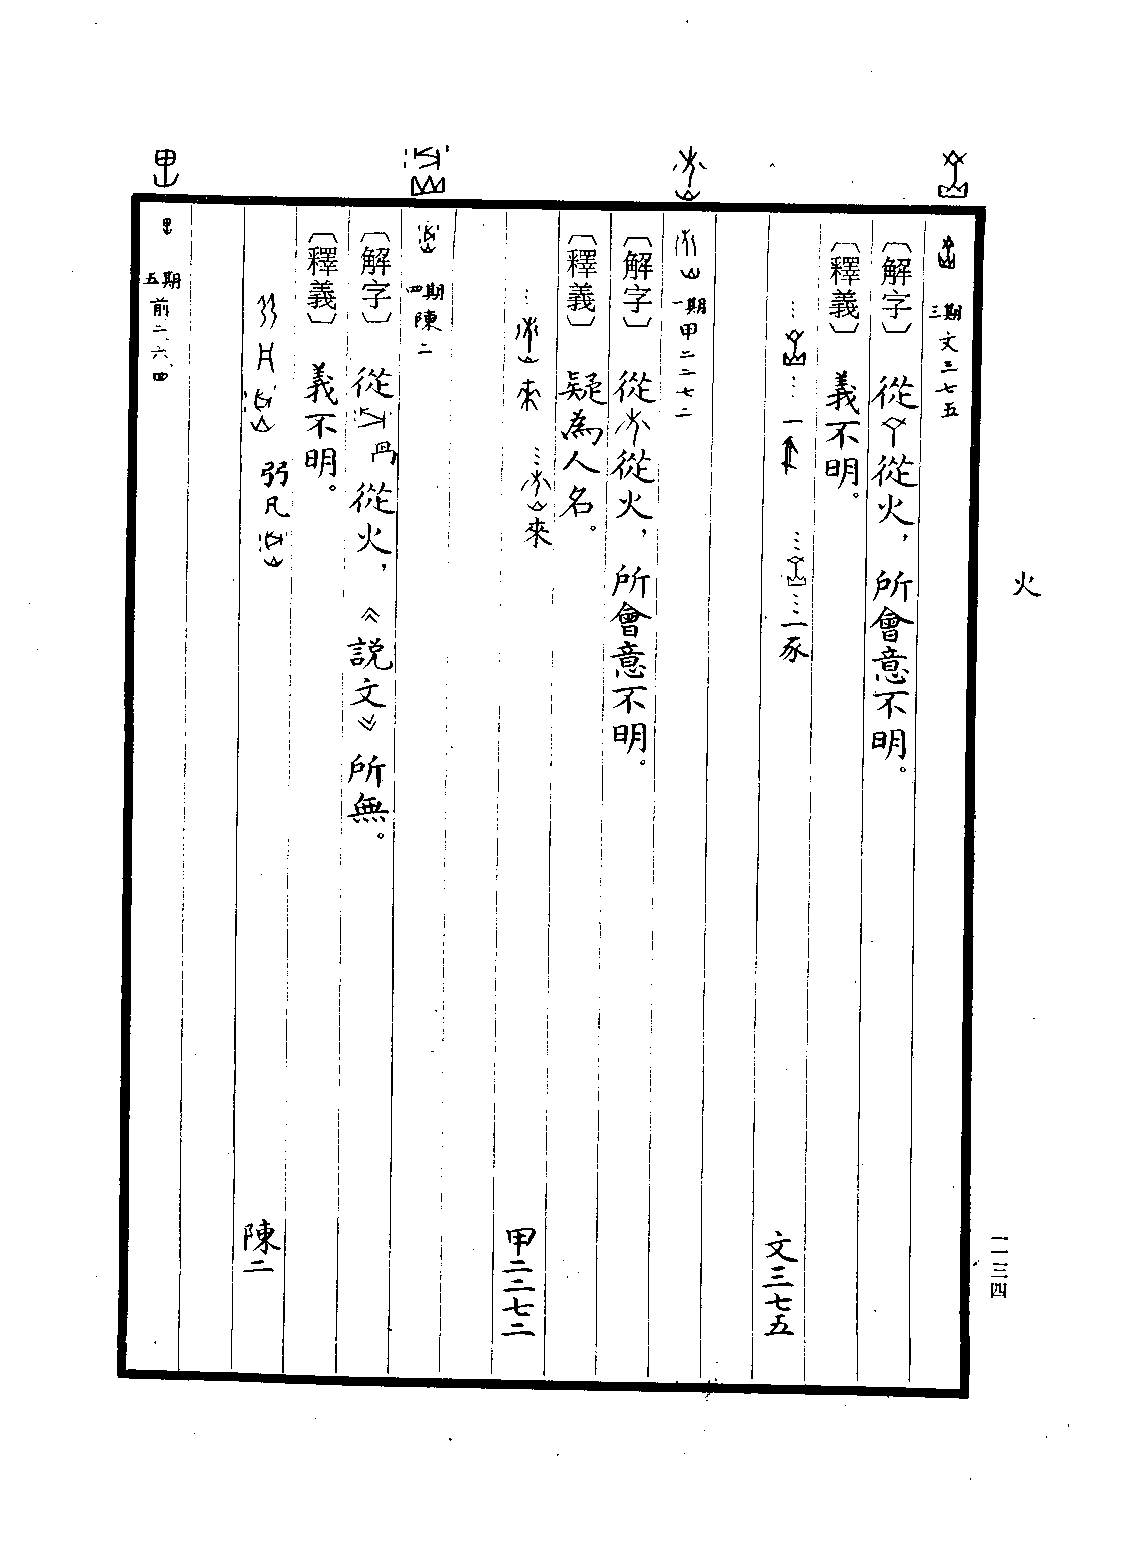 火
一一三四
三期 文三七五
〔解字〕 從從火，所會意不明。
〔釋義〕 義不明。
…… 一 …… 一豕 文三七五
一期 甲二二七二
〔解字〕 從從火，所會意不明。
〔釋義〕 疑為人名。
…來 …來 甲二二七二
四期 陳二
〔解字〕 從從火，《説文》所無。
〔釋義〕 義不明。
弜凡 陳二
五期 前二、六、四